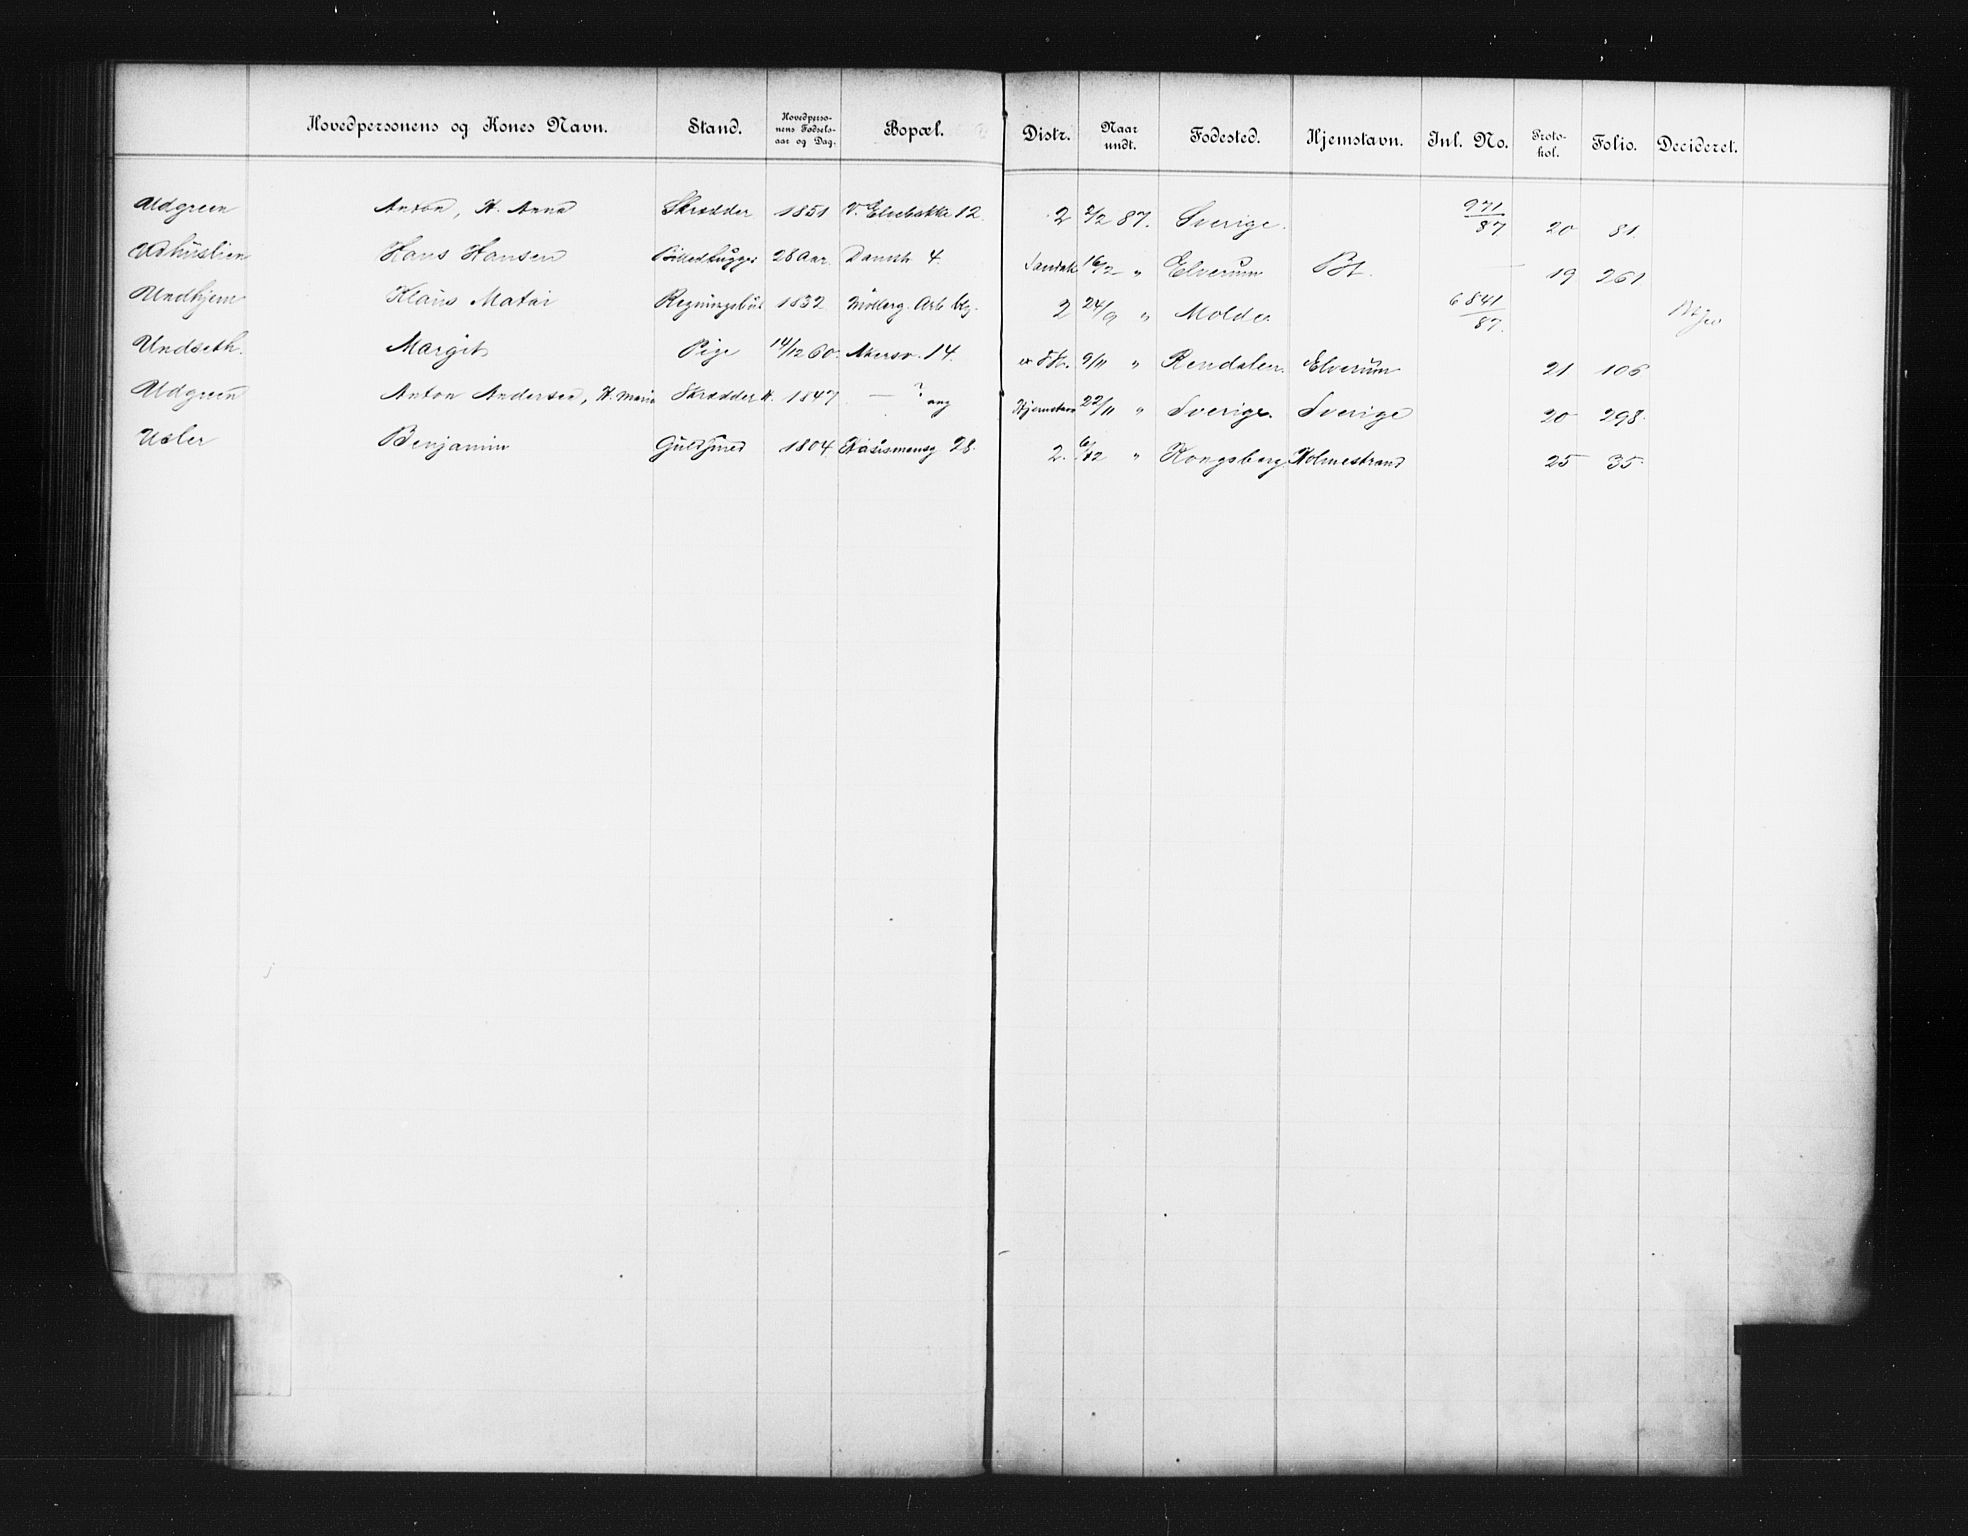 Hovedpersonens og Kones Navn. Stand. Hovedperso-nens Fødsels-aar og Dag. Bopæl. Distr. Naar undt. Fødested. Hjemstavn. Inl. No. Proto-kol. Folio. Decideret.
Uldgreen Anton, H. Anna Skrædder 1851 V. Elvebakke 12. 2 2/2 87. Sverige. 971/87 20 81.
Hans Hansen Billedhugger 28 Aar. Dannh 4. 16/2 " Elverum 19 261
Undhjem Klaus 1832 Møllerg. Arb. 2 24/9 " Molde 6841/87.
Undseth. Margit Pige 14/12 60. Akersv. 14. 9/11 " Rendalen. Elverum 21 106
Uldgreen Anton Andersen, H. Maria Skrædder 1847. — ? Hjemstavn 22/11 " Sverige. Sverige 20 298.
Usler Benjamin Guldsmed 1804 28. 2. 6/12 " Kongsberg Holmestrand 25 35.